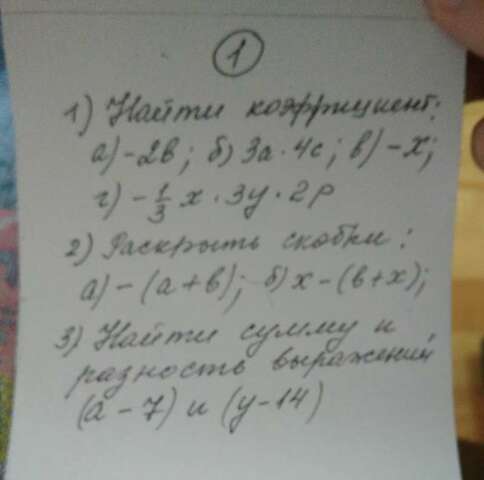 1
1) Найти коэффициент:
а) -2в; б) 3а · 4с; в) -х;
г) -1/3 х · 3у · 2р
2) Раскрыть скобки:
а) -(а+в); б) х-(в+х);
3) Найти сумму и
разность выражений
(а-7) и (у-14)